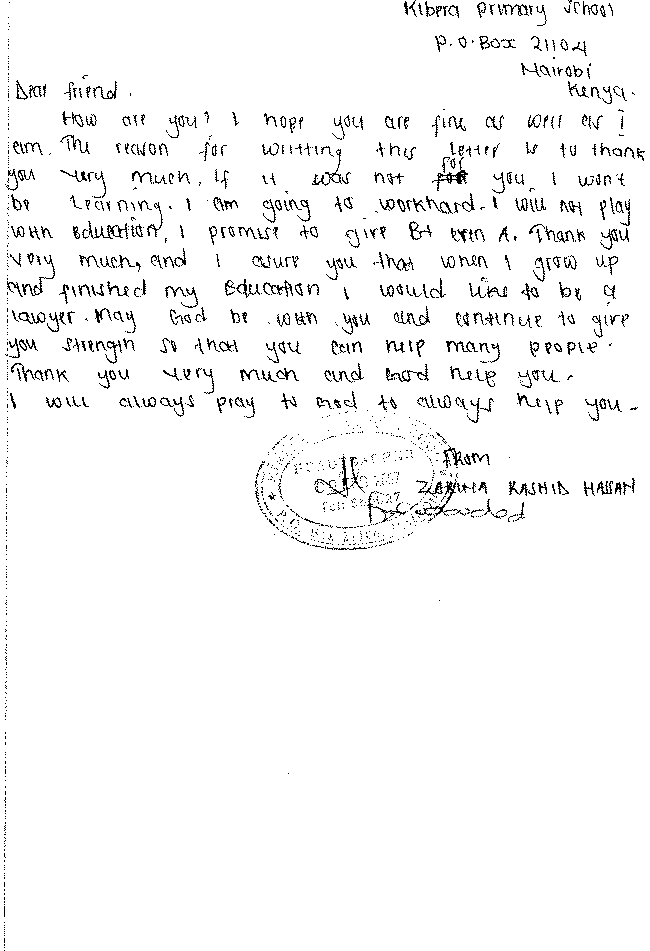 Kibera primary school
P.O. Box 21104
Nairobi
Kenya.
Dear friend.
How are you? I hope you are fine as well as I
am. The reason for writting this letter is to thank
you very much, If it was not for you I won't
be learning. I am going to workhard. I will not play
with Education, I promise to give B+ even A. Thank you
very much, and I asure you that when I grow up
and finished my Education I would like to be a
lawyer. May God be with you and continue to give
you strength so that you can help many people.
Thank you very much and God help you.
I will always pray to God to always help you.
From
ZARINA RASHID HASSAN